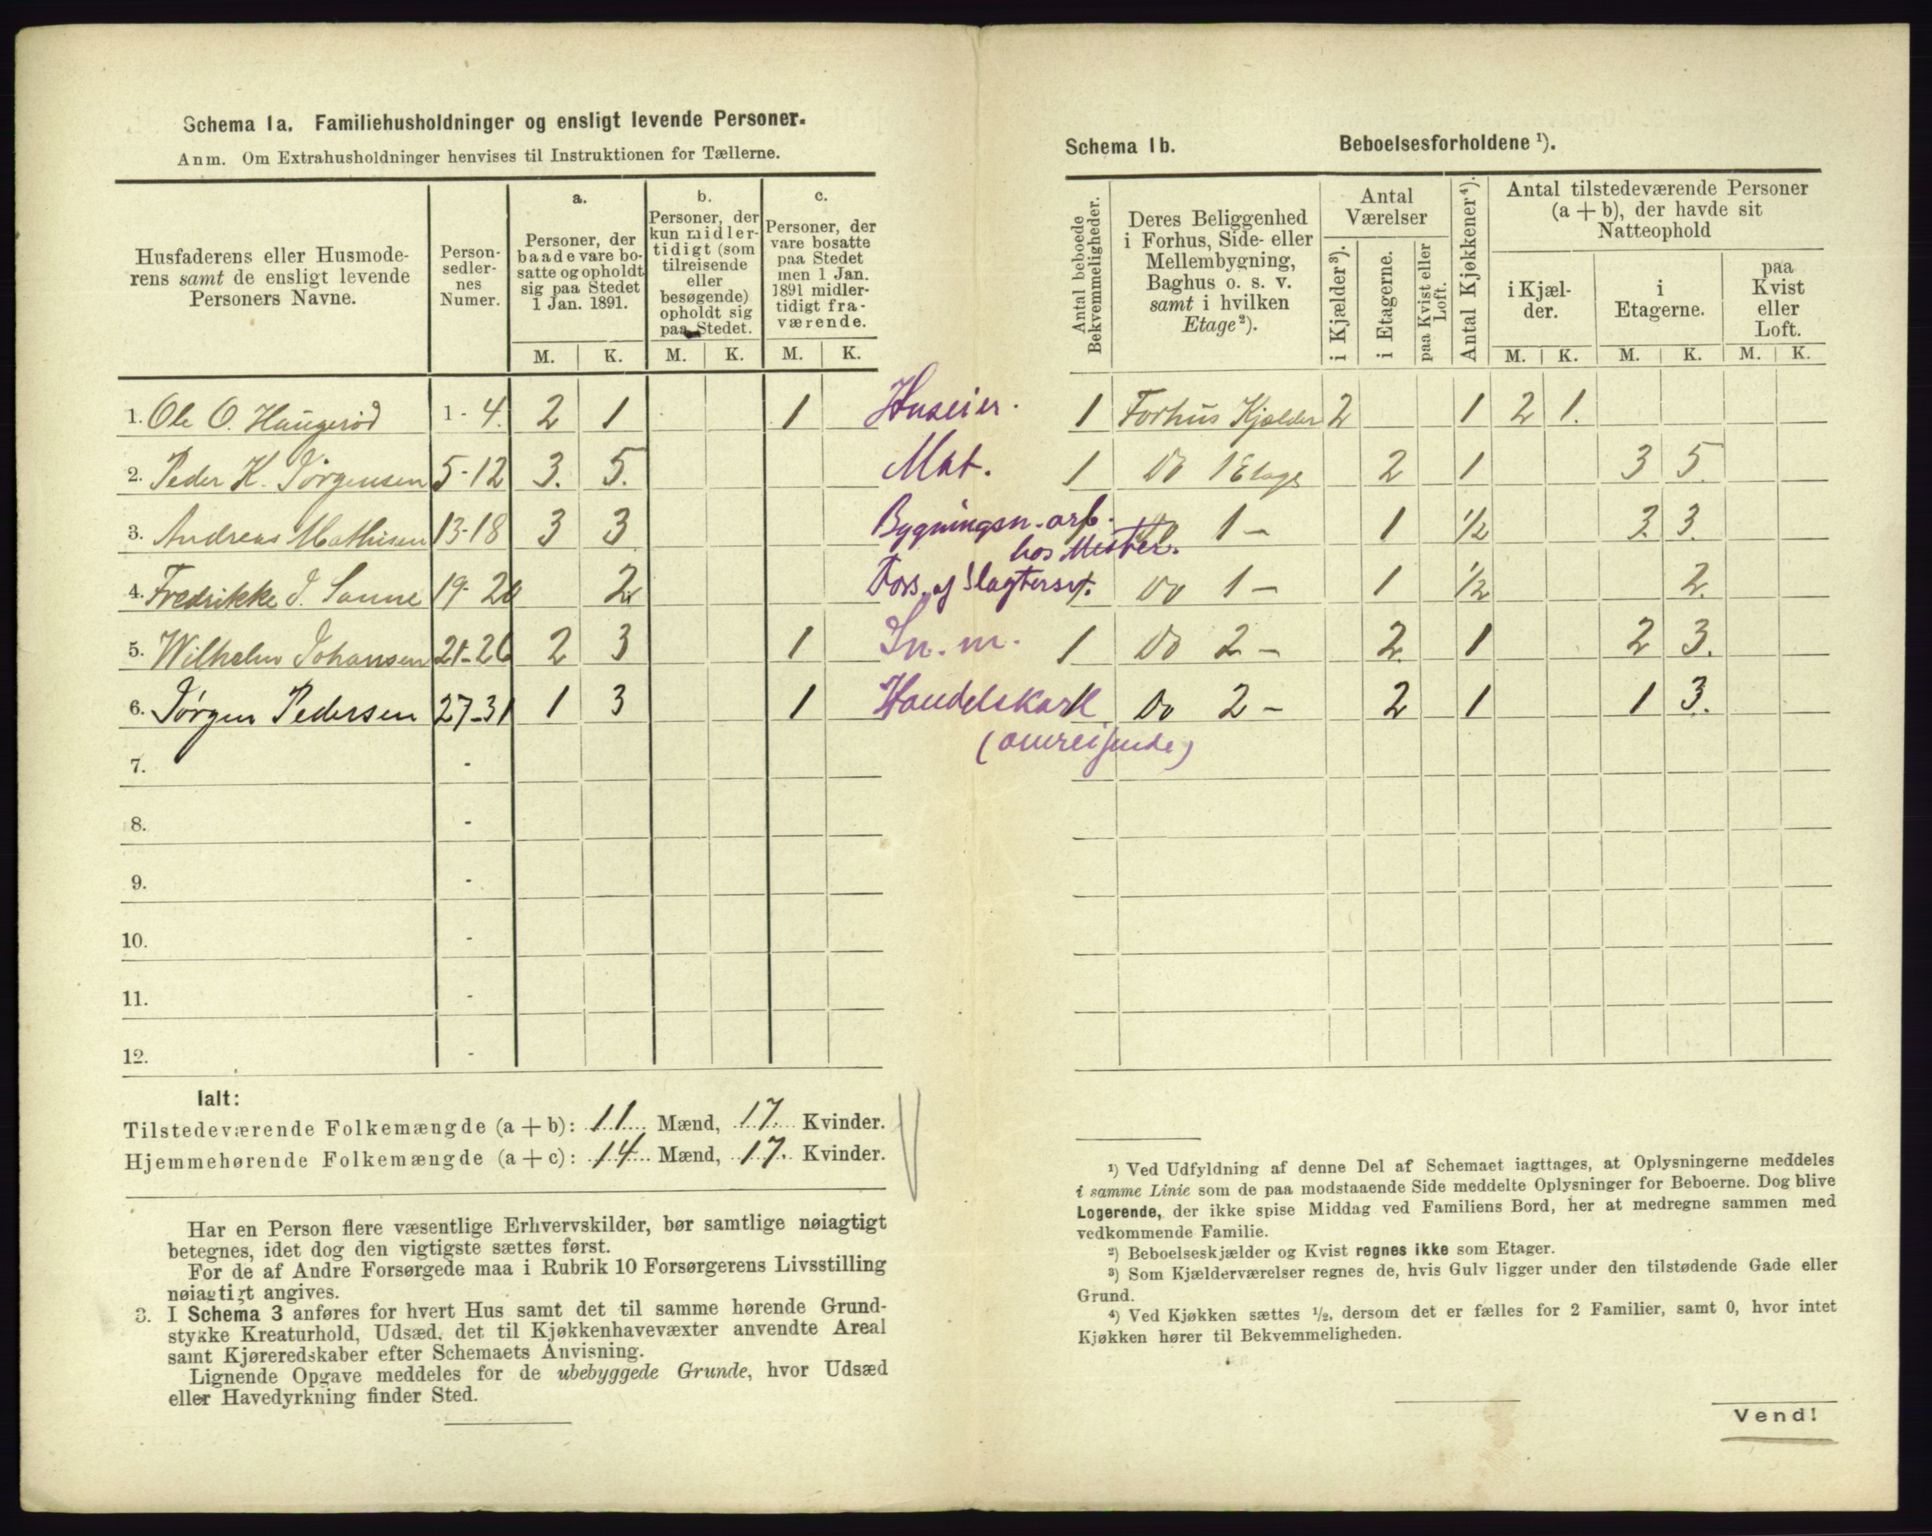 Schema 1a. Familiehusholdninger og ensligt levende Personer.
Anm. Om Extrahusholdninger henvises til Instruktionen for Tællerne.
Husfaderens eller Husmode-
rens samt de ensligt levende
Personers Navne.
Person-
sedler-
nes
Numer.
a.
Personer, der
baade vare bo-
satte og opholdt
sig paa Stedet
1 Jan. 1891.
b.
Personer, der
kun midler-
tidigt (som
tilreisende
eller
besøgende)
opholdt sig
paa Stedet.
c.
Personer, der
vare bosatte
paa Stedet
men 1 Jan.
1891 midler-
tidigt fra-
værende.
M. K. M. K. M. K.
1. Ole O. Haugerød 1-4. 2 1 1 Huseier.
2. Peder K. Jørgensen 5-12 3. 5. Mat.
3. Andreas Mathisen 13-18 3 3 Bygningsn. arb.
hos Mester.
4. Fredrikke J. Sanne 19-20 2 Fors. af Slagtersv.
5. Wilhelm Johansen 21-26 2 3 1 Sn. m.
6. Jørgen Pedersen 27-31 1 3 1 Handelskarl
(omreisende)
7. -
8. -
9. -
10. -
11. -
12. -
Ialt:
Tilstedeværende Folkemængde (a + b): 11 Mænd, 17 Kvinder.
Hjemmehørende Folkemængde (a + c): 14 Mænd, 17. Kvinder.
Har en Person flere væsentlige Erhvervskilder, bør samtlige nøiagtigt
betegnes, idet dog den vigtigste sættes først.
For de af Andre Forsørgede maa i Rubrik 10 Forsørgerens Livsstilling
nøiagtigt angives.
3. I Schema 3 anføres for hvert Hus samt det til samme hørende Grund-
stykke Kreaturhold, Udsæd, det til Kjøkkenhavevæxter anvendte Areal
samt Kjøreredskaber efter Schemaets Anvisning.
Lignende Opgave meddeles for de ubebyggede Grunde, hvor Udsæd
eller Havedyrkning finder Sted.
Schema 1b. Beboelsesforholdene ¹).
Antal beboede
Bekvemmeligheder.
Deres Beliggenhed
i Forhus, Side- eller
Mellembygning,
Baghus o. s. v.
samt i hvilken
Etage²).
Antal
Værelser
i Kjælder³).
i Etagerne.
paa Kvist eller
Loft.
Antal Kjøkkener⁴).
Antal tilstedeværende Personer
(a + b), der havde sit
Natteophold
i Kjæl-
der.
i
Etagerne.
paa
Kvist
eller
Loft.
M. K. M. K. M. K.
1 Forhus Kjælder 2 1 2 1.
1 Do 1 Etage 2 1 3 5.
1 Do 1 - 1 ½ 3. 3.
Do 1 - 1 ½ 2.
1 Do 2 - 2. 1 2 3.
1 Do 2 - 2 1 1 3.
¹) Ved Udfyldning af denne Del af Schemaet iagttages, at Oplysningerne meddeles
i samme Linie som de paa modstaaende Side meddelte Oplysninger for Beboerne. Dog blive
Logerende, der ikke spise Middag ved Familiens Bord, her at medregne sammen med
vedkommende Familie.
²) Beboelseskjælder og Kvist regnes ikke som Etager.
³) Som Kjælderværelser regnes de, hvis Gulv ligger under den tilstødende Gade eller
Grund.
⁴) Ved Kjøkken sættes ½, dersom det er fælles for 2 Familier, samt 0, hvor intet
Kjøkken hører til Bekvemmeligheden.
Vend!